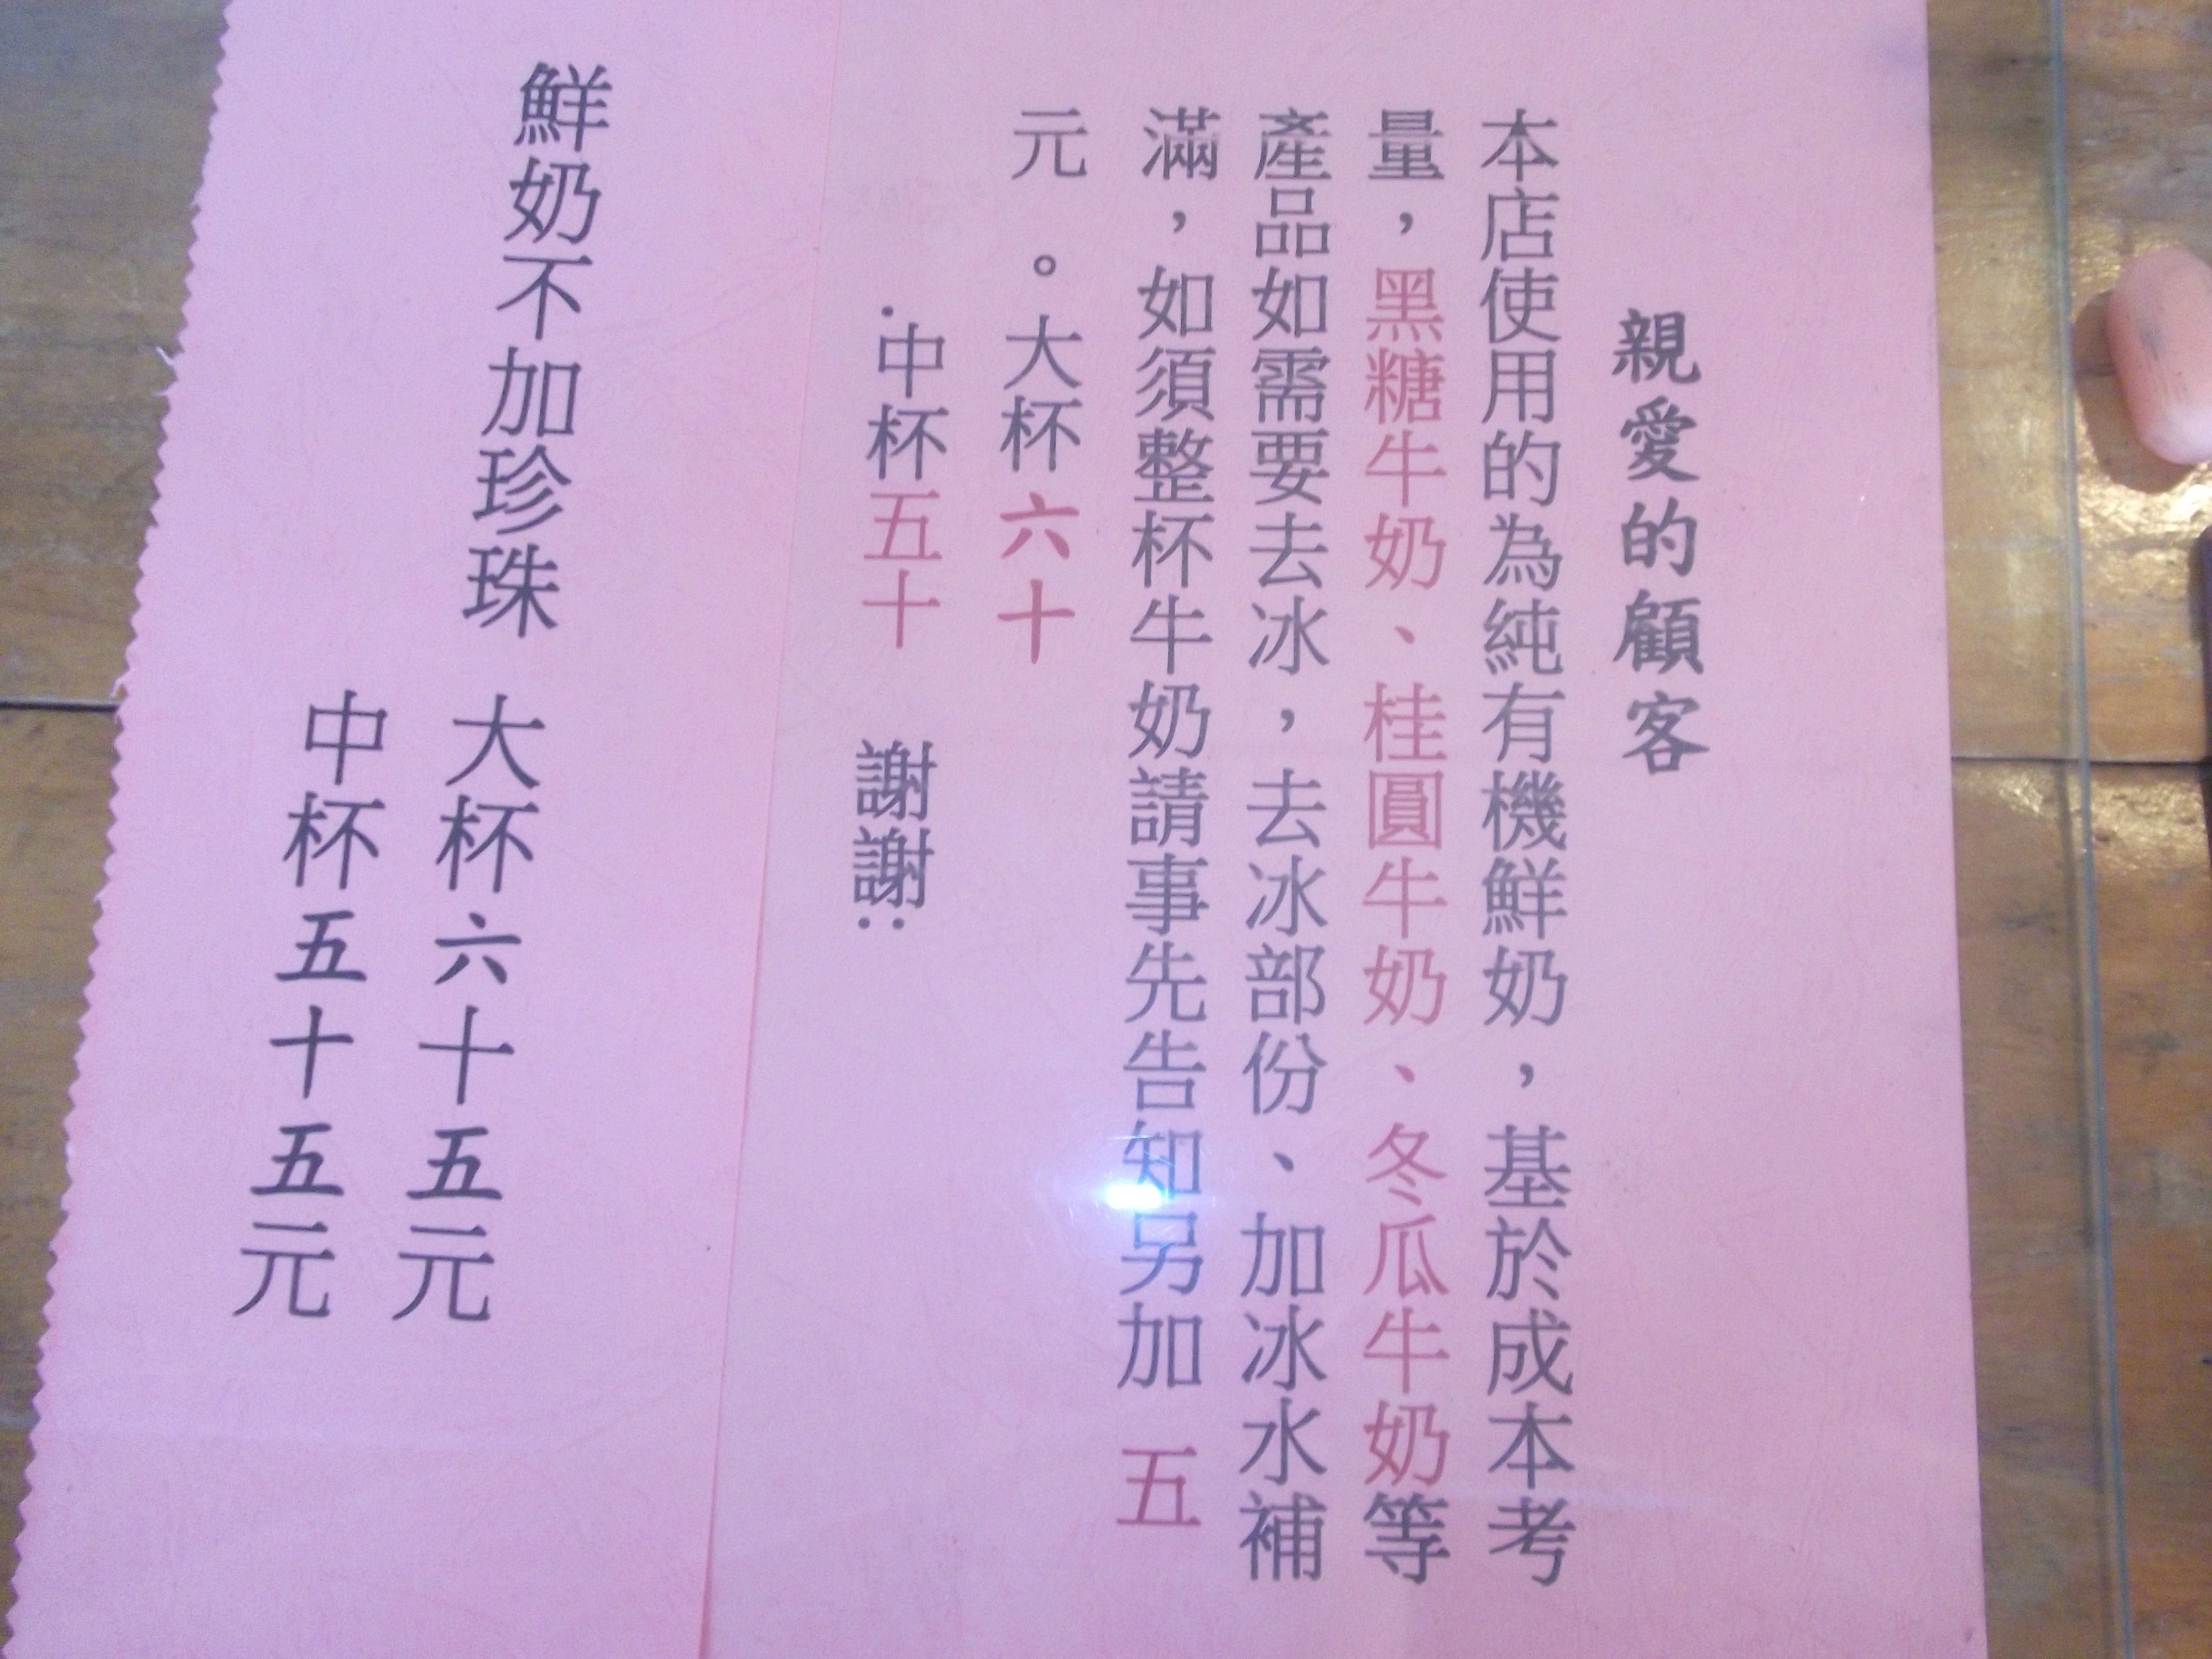 親愛的顧客
本店使用的為純有機鮮奶，基於成本考
量，黑糖牛奶、桂圓牛奶、冬瓜牛奶等
產品如需要去冰，去冰部份、加冰水補
滿，如須整杯牛奶請事先告知另加 五
元 。大杯六十
.中杯五十 謝謝:
鮮奶不加珍珠 大杯六十五元
中杯五十五元